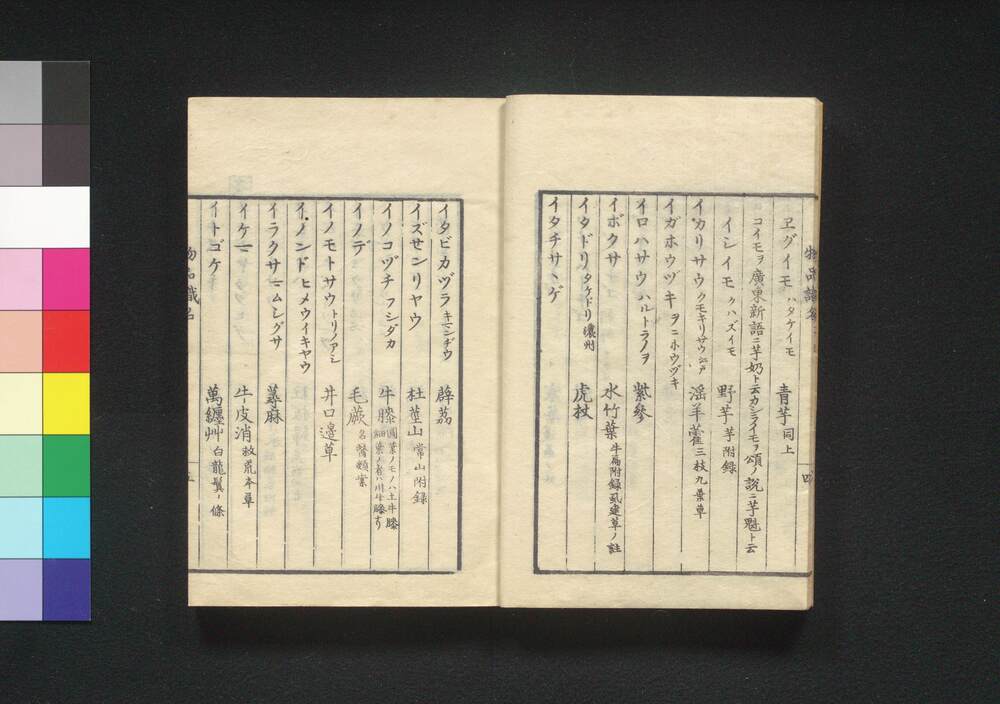 ヱグイモ ハタケイモ 青芋 同上
コイモヲ廣東新語ニ芋奶ト云カシライモヲ頌ノ説ニ芋魁ト云
イシイモ クハズイモ 野芋 芋附録
イカリサウ クモキリサウ 淫羊藿 三枝九葉草
イガホウヅキ ヲニホウヅキ
イロハサウ ハルトラノヲ 紫參
イボクサ 水竹葉 牛扁附録虱建草ノ註
イタドリ タケドリ 濃州 虎杖
イタチサヽゲ
物品識名
四
イタビカヅラ キマンヂウ 薜荔
イズセンリヤウ 杜莖山 常山附録
イノコヅチ フシダカ 牛膝 圓葉ノモノハ土牛膝 細葉ノ者ハ川牛膝ナリ
イノデ 毛蕨 名醫類案
イノモトサウ トリノアシ 井口邊草
イノンド ヒメウイキヤウ
イラクサ ニムシグサ 蕁麻
イケマ 牛皮消 救荒本草
イトゴケ 萬纏艸 白龍鬚ノ條
物品識名
五